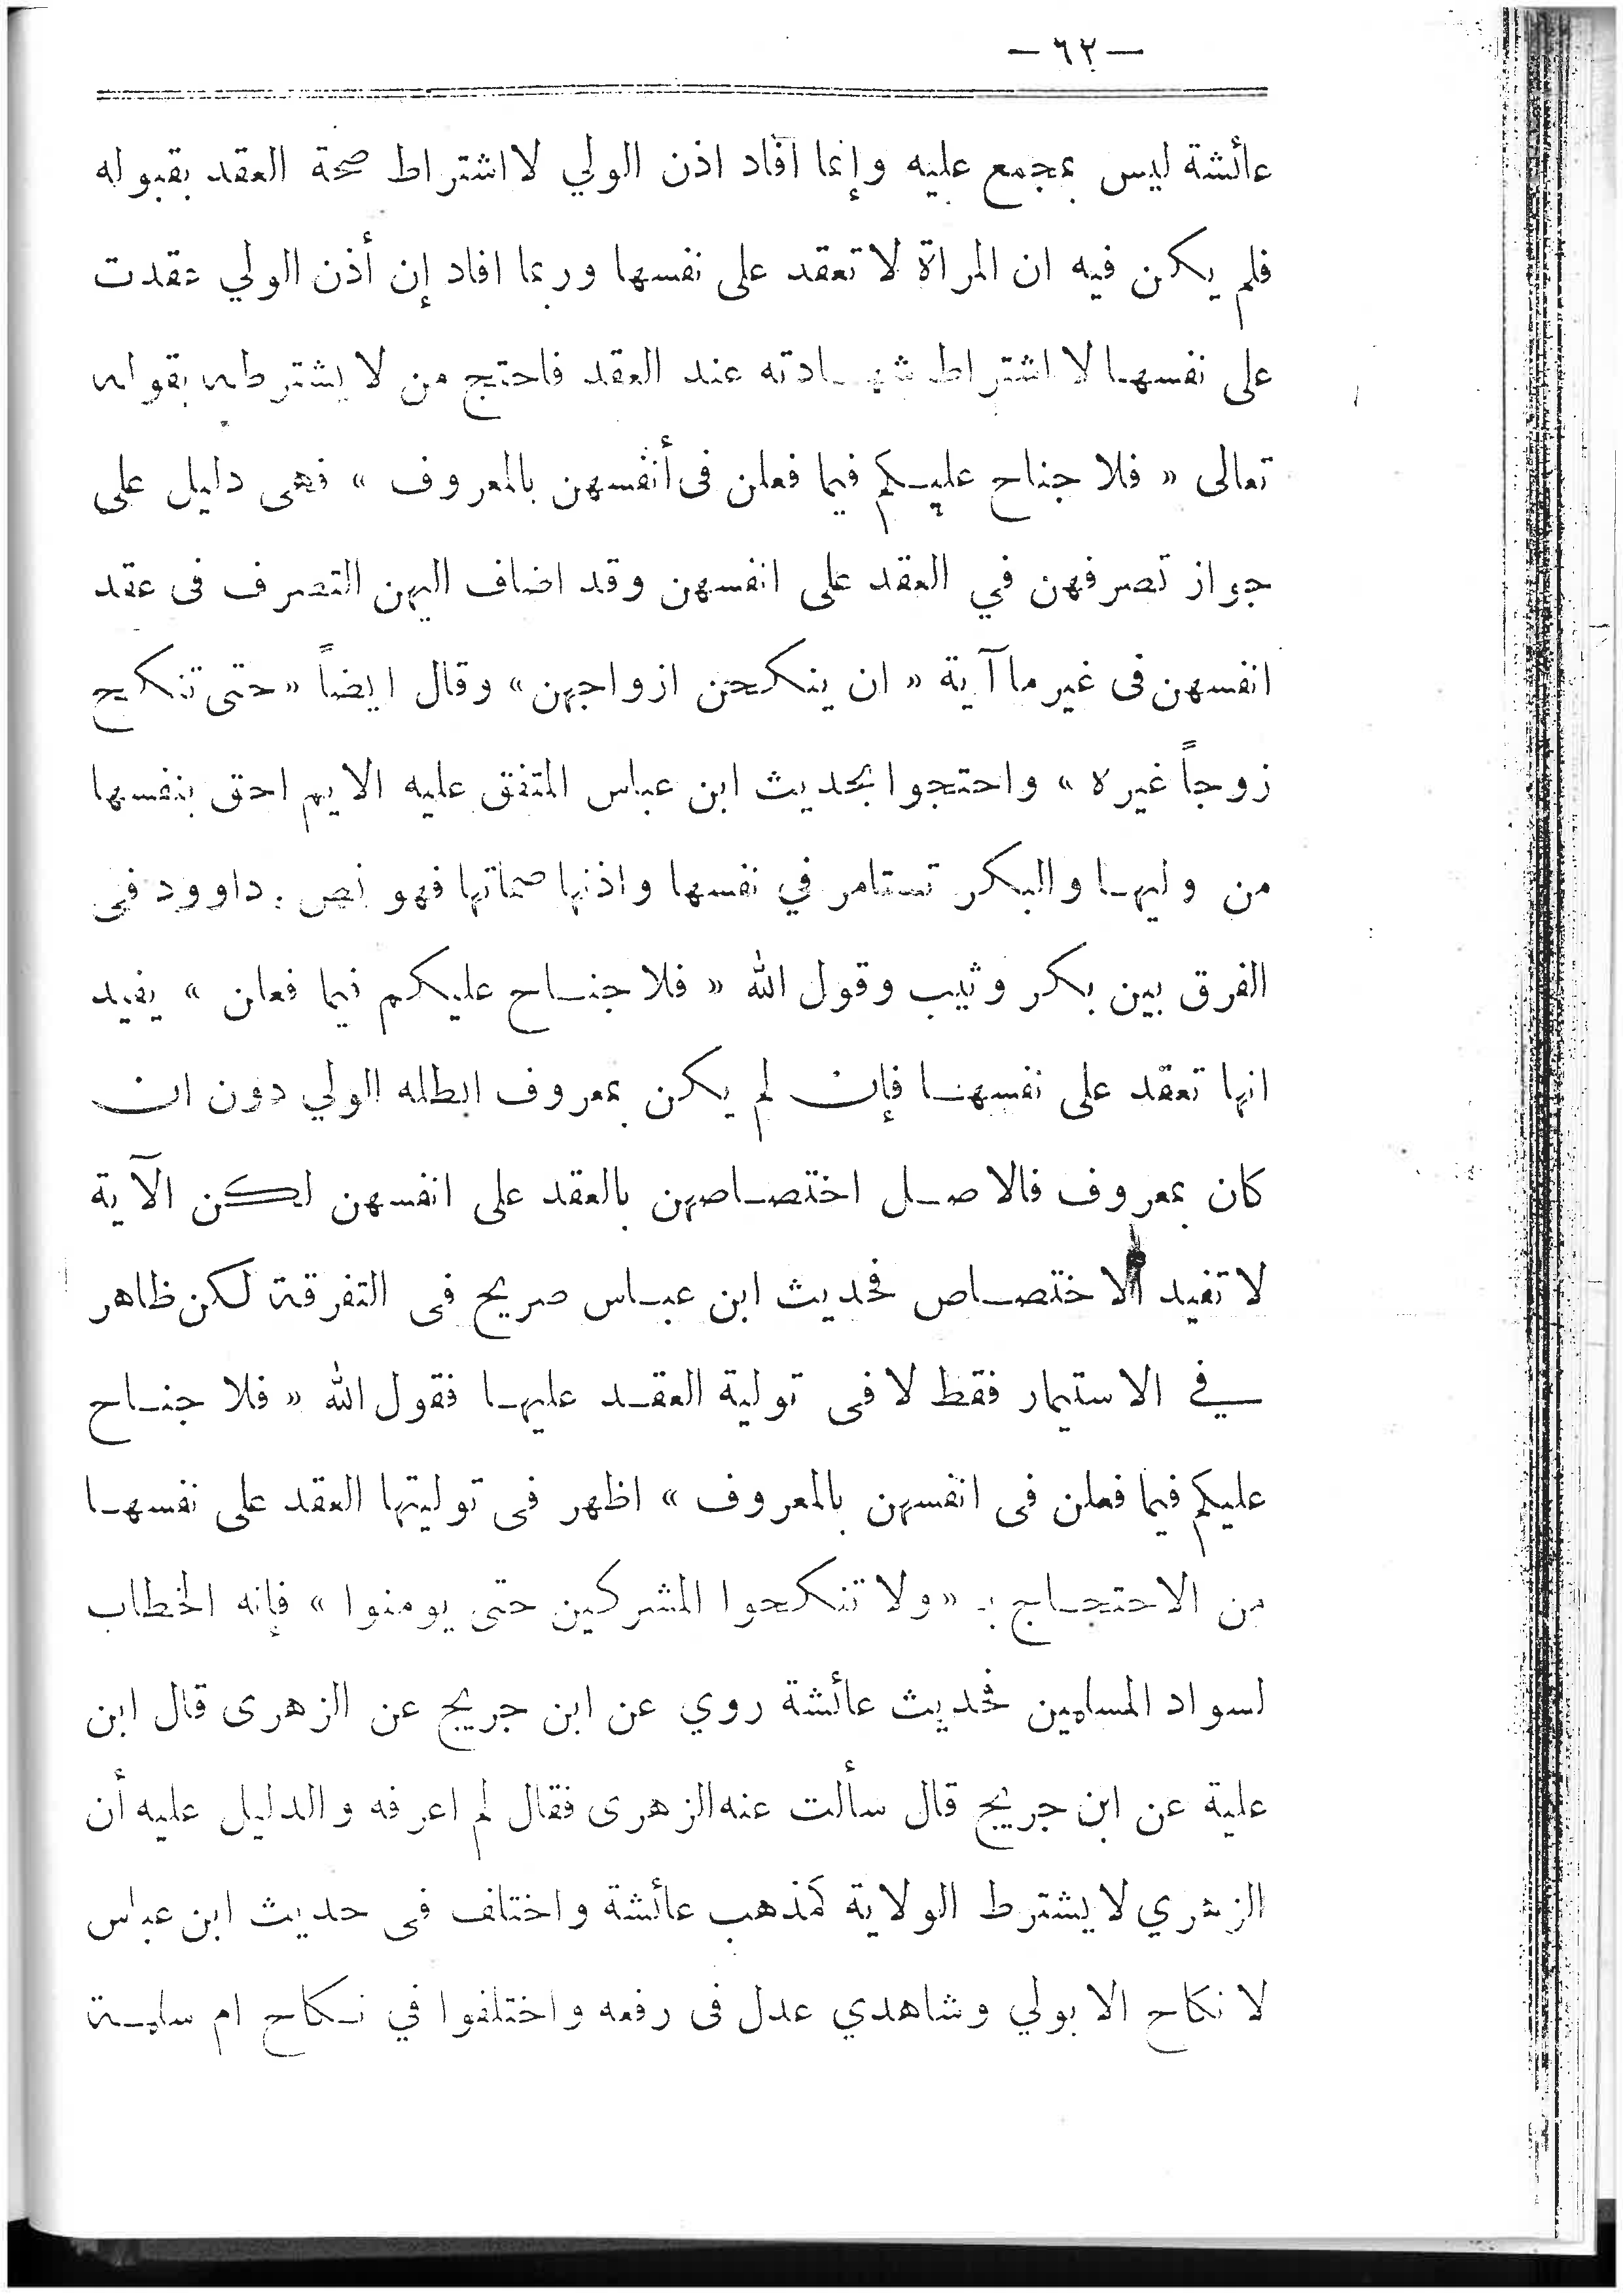 — ٦٢ —
عائشة ليس بمجمع عليه وإنما أفاد اذن الولي لا اشتراط صحة العقد بقبوله
فلم يكن فيه ان المراة لا تعقد على نفسها وربما افاد إن أذن الولي عقدت
على نفسها لا اشتراط شهادته عند العقد فاحتج من لا يشترطه بقوله
تعالى « فلا جناح عليكم فيما فعلن فى أنفسهن بالمعروف » فهى دليل على
جواز تصرفهن في العقد على انفسهن وقد اضاف اليهن التصرف فى عقد
انفسهن فى غير ما آية « ان ينكحن ازواجهن » وقال ايضاً « حتى تنكح
زوجاً غيره » واحتجوا بحديث ابن عباس المتفق عليه الايم احق بنفسها
من وليها والبكر تستامر في نفسها واذنها صماتها فهو نص . داوود فى
الفرق بين بكر وثيب وقول الله « فلا جناح عليكم فيما فعلن » يفيد
انها تعقد على نفسها فإن لم يكن بمعروف ابطله الولي دون ان
كان بمعروف فالاصل اختصاصهن بالعقد على انفسهن لكن الآية
لا تفيد الاختصاص فحديث ابن عباس صريح فى التفرقة لكن ظاهر
في الاستيمار فقط لا فى تولية العقد عليها فقول الله « فلا جناح
عليكم فيما فعلن فى انفسهن بالمعروف » اظهر فى توليتها العقد على نفسها
من الاحتجاج بـ « ولا تنكحوا المشركين حتى يومنوا » فإنه الخطاب
لسواد المسلمين فحديث عائشة روي عن ابن جريج عن الزهرى قال ابن
علية عن ابن جريج قال سألت عنه الزهرى فقال لم اعرفه والدليل عليه أن
الزهري لا يشترط الولاية كمذهب عائشة واختلف فى حديث ابن عباس
لا نكاح الا بولي وشاهدي عدل فى رفعه واختلفوا في نكاح ام سلمة